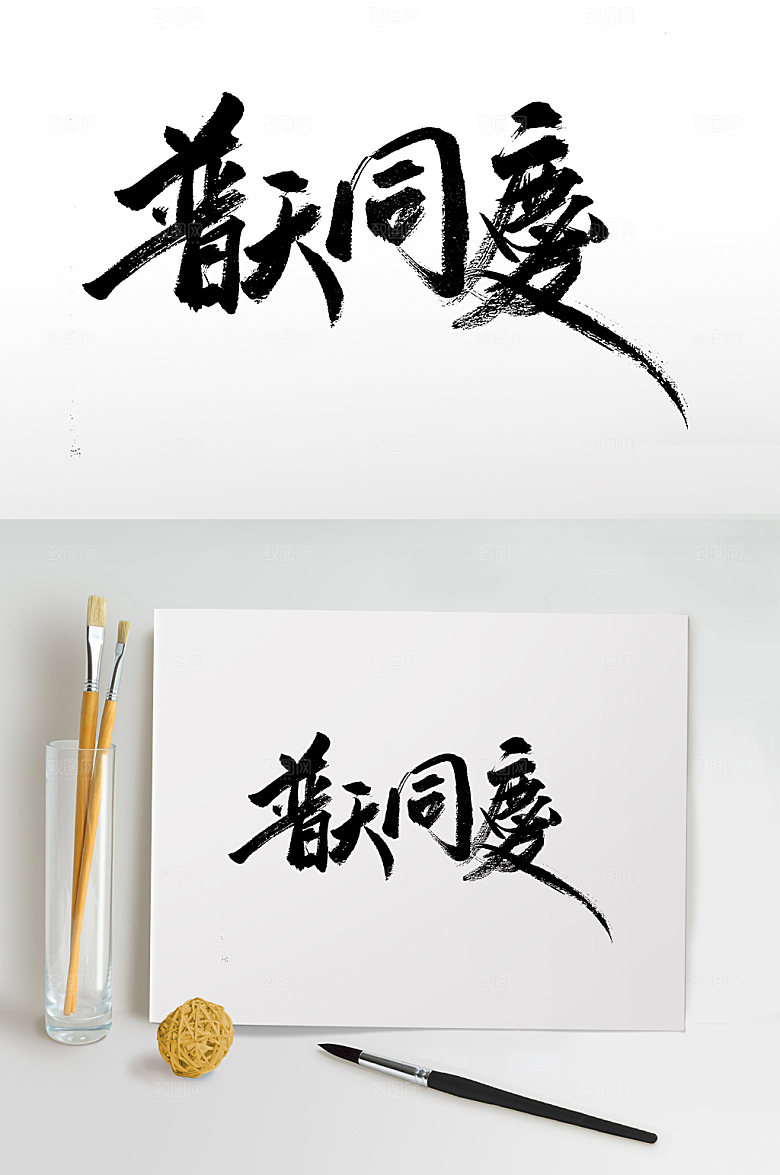 普天同慶
普天同慶